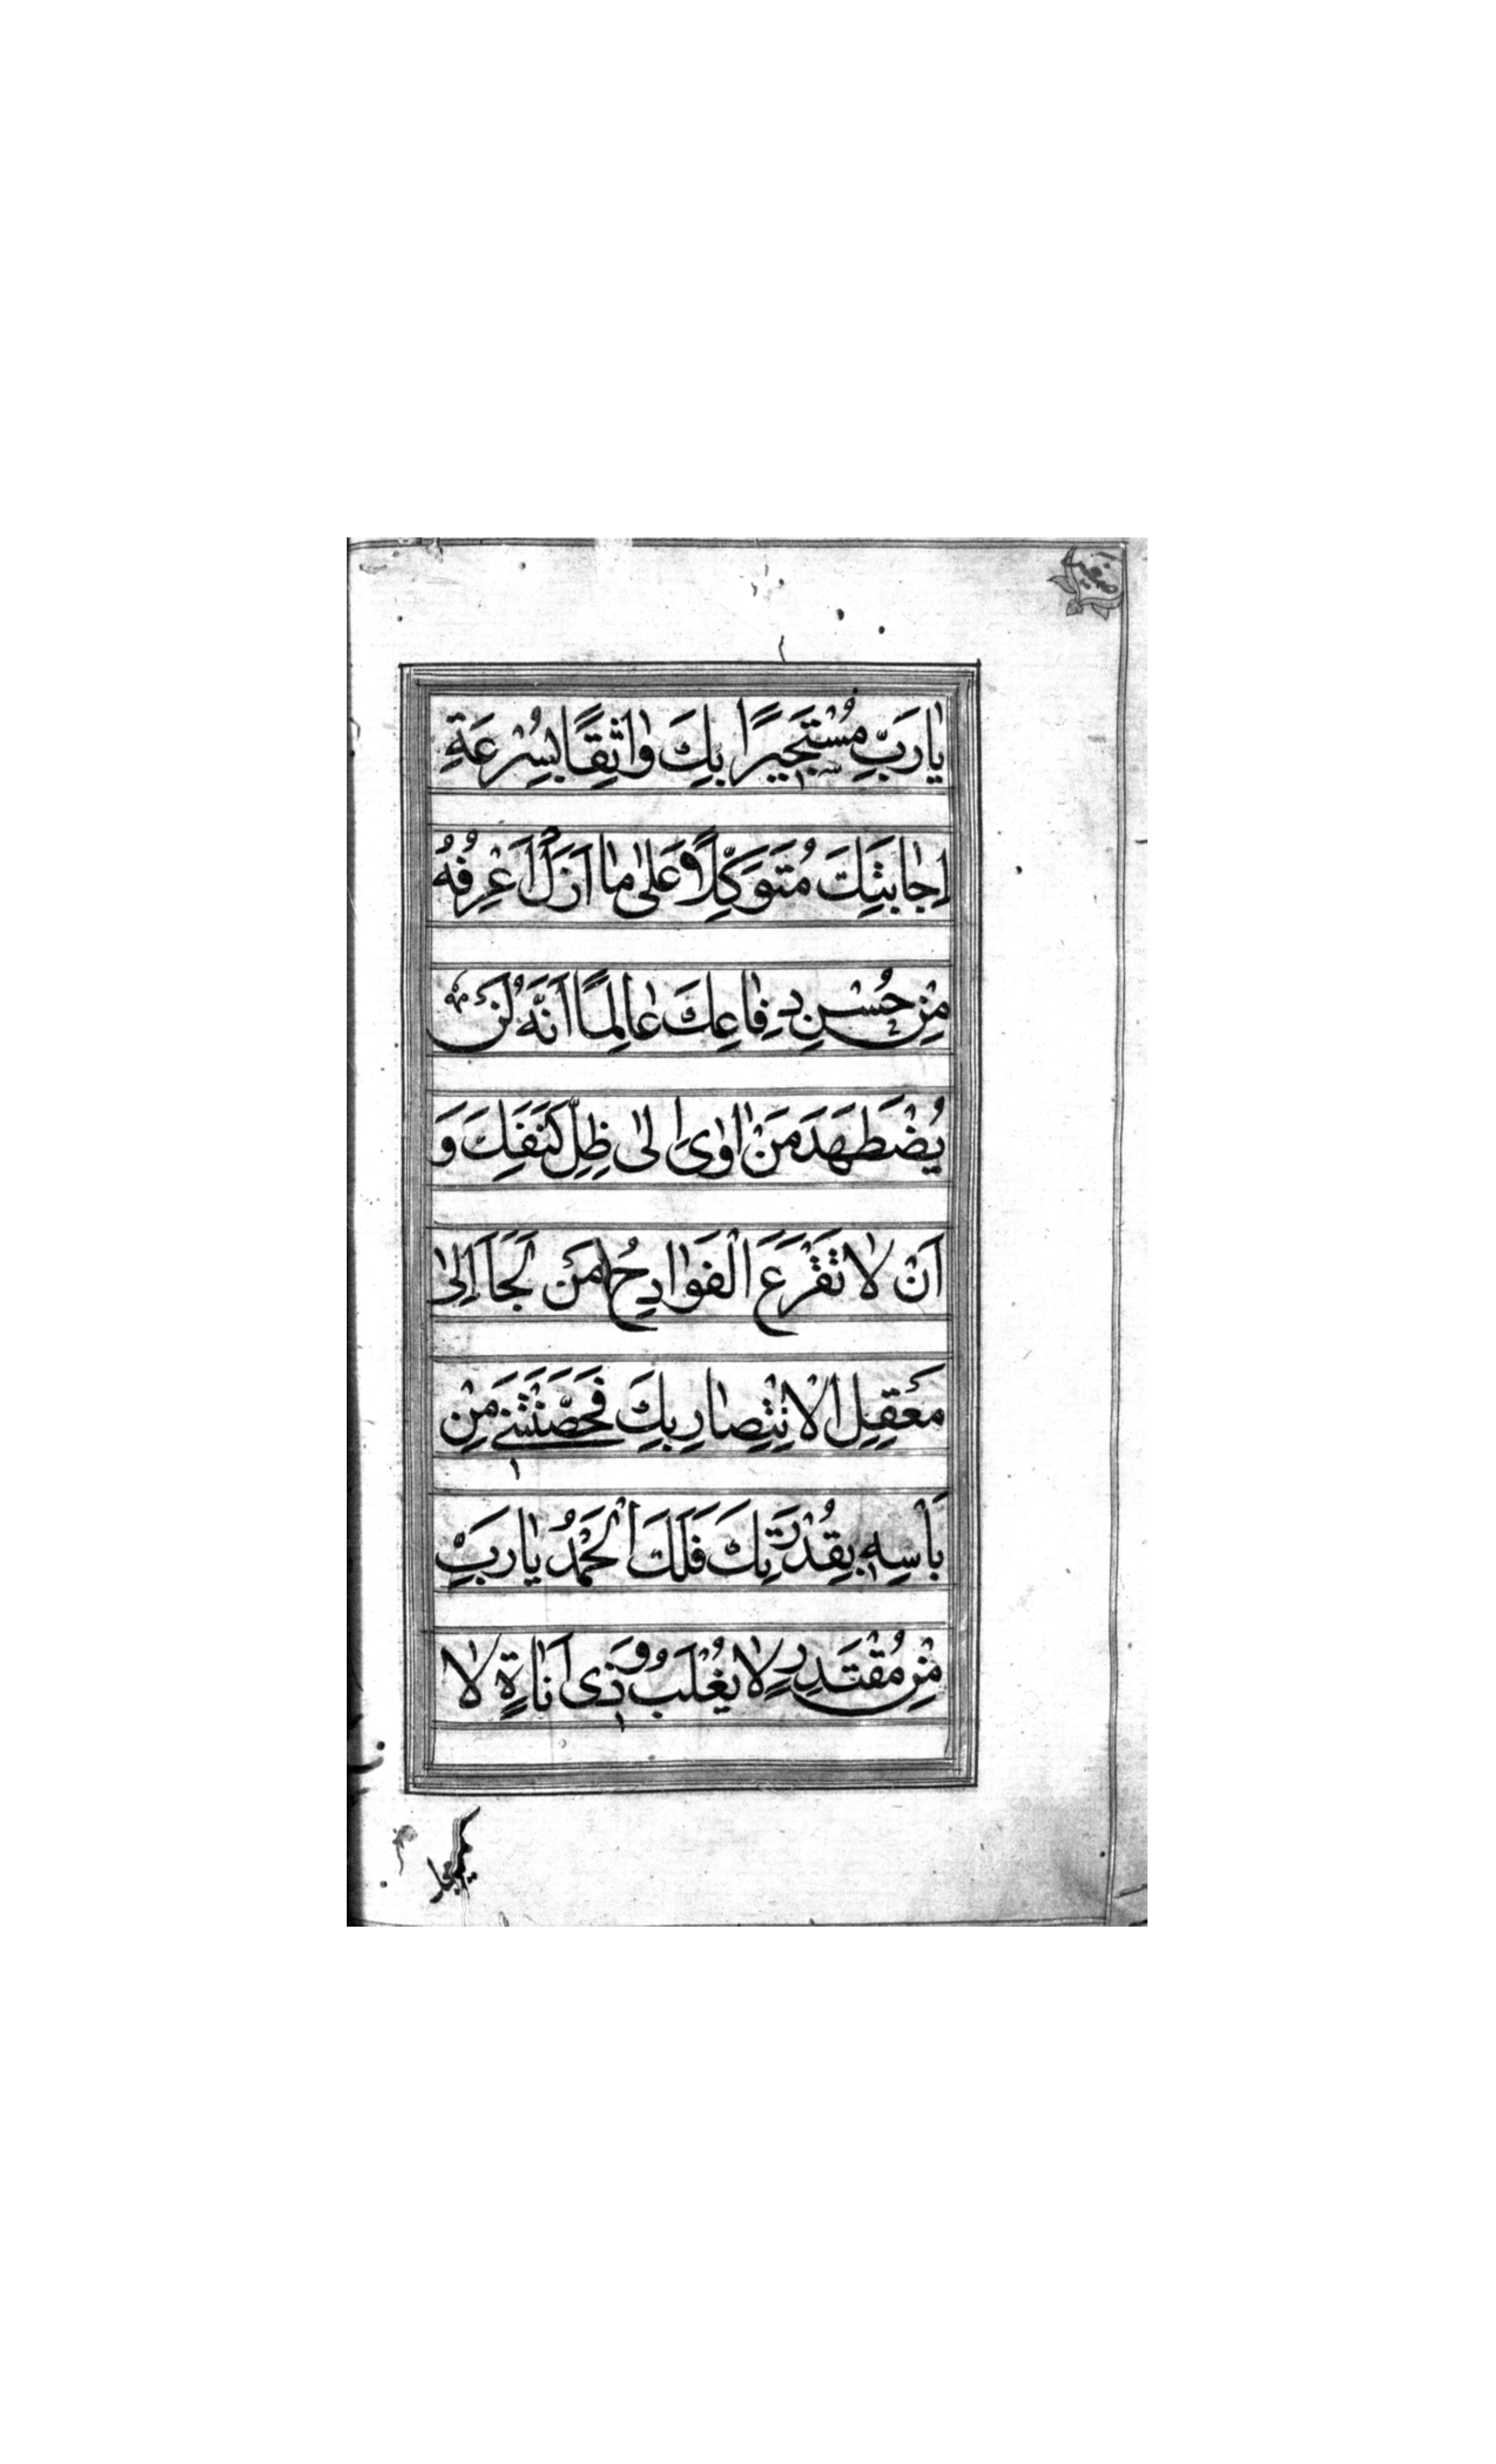 يٰارَبِّ مُسْتَجيرًا بِكَ وٰاثِقًا بِسُرْعَةِ
اِجٰابَتِكَ مُتَوَكِّلًا عَلىٰ مٰا اَزَلْ اَعْرِفُهُ
مِنْ حُسْنِ دِفٰاعِكَ عٰالِمًا اَنَّهُ لَنْ
يُضْطَهَدَ مَنْ اٰوىٰ اِلىٰ ظِلِّ كَنَفِكَ وَ
اَنْ لٰا تَقْرَعَ الْفَوٰادِحُ مَنْ لَجَاَ اِلىٰ
مَعْقِلِ الْاِنْتِصٰارِ بِكَ فَحَصَّنْتَنى مِنْ
بَأْسِهِ بِقُدْرَتِكَ فَلَكَ الْحَمْدُ يٰارَبِّ
مِنْ مُقْتَدِرٍ لٰا يُغْلَبُ وَذى اَنٰاةٍ لٰا